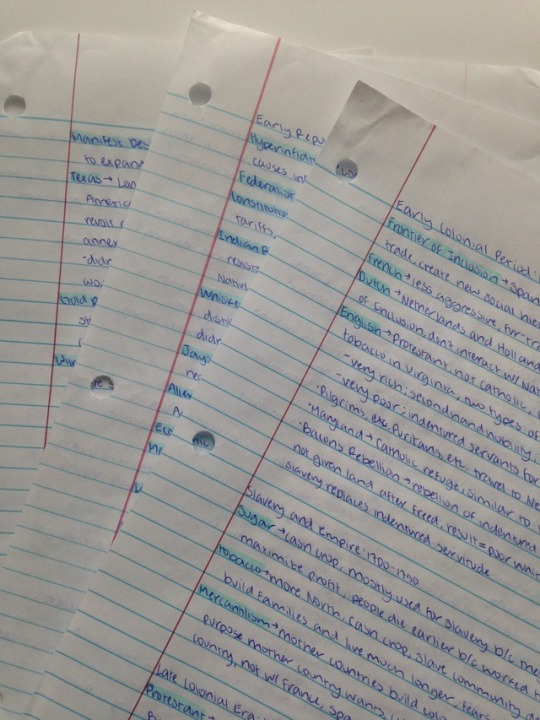 Manifest Des
to expan
Texas → Lon
Americ
revolt
annex
-didn
wo
Gold
Early Repu
Hyperinflat
causes in
Federalist
Constitutio
tariffs,
Indian R
resist
Native
Whiske
disti
didn
Jay
Alien
Early Colonial Period:
Frontier of Inclusion → Spani
trade, create new social hier
French → less aggressive, fur-tra
Dutch → Netherlands and Holland
English → Protestant, not Catholic,
of Exclusion, don't interact w/ Nat
tobacco in Virginia, two types of
-very rich: second hand nobility
-very poor: indentured servants for
·Pilgrims, etc. Puritans, etc. travel to Ne
·Maryland → Catholic refuge, similar to
·Bacons Rebellion → rebellion of indentured
not given land after freed, result = poor whit
slavery replaces indentured servitude
Slavery and Empire: 1700-1750
Sugar → cash crop, mostly used for slavery b/c the
maximize profit, people die earlier b/c worked t
Tobacco → more North, cash crop, slave community
build families and live much longer, tear
Mercantilism → mother countries build colo
purpose mother country wants
country, not w/ France, Spa
Late Colonial Era
Protestant →